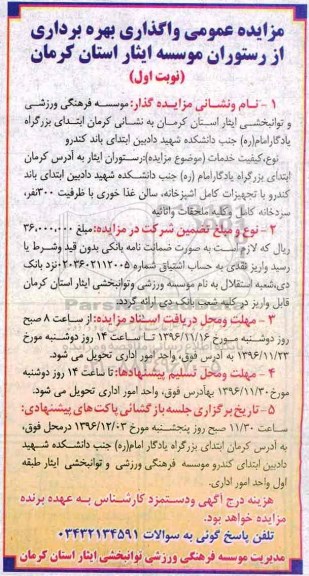 مزایده عمومی واگذاری بهره برداری
از رستوران موسسه ایثار استان کرمان
(نوبت اول)
۱ - نام ونشانی مزایده گذار: موسسه فرهنگی ورزشی
و توانبخشی ایثار استان کرمان به نشانی کرمان ابتدای بزرگراه
یادگارامام(ره) جنب دانشکده شهید دادبین ابتدای باند کندرو
نوع،کیفیت خدمات (موضوع مزایده):رستوران ایثار به آدرس کرمان
ابتدای بزرگراه یادگارامام (ره) جنب دانشکده شهید دادبین ابتدای باند
کندرو با تجهیزات کامل آشپزخانه، سالن غذا خوری با ظرفیت ۳۰۰نفر،
سردخانه کامل وکلیه ملحقات واثاثیه
۲ - نوع و مبلغ تضمین شرکت در مزایده: مبلغ ۳۶,۰۰۰,۰۰۰
ریال که لازم است به صورت ضمانت نامه بانکی بدون قید وشرط یا
رسید واریز نقدی به حساب اشتیاق شماره ۰۲۰۳۶۰۲۱۱۲۰۰۵نزد بانک
دی،شعبه استقلال به نام موسسه ورزشی وتوانبخشی ایثار استان کرمان
قابل واریز در کلیه شعب بانک دی ارائه گردد.
۳ - مهلت ومحل دریافت اسناد مزایده: از ساعت ۸ صبح
روز دوشنبه مورخ ۱۳۹۶/۱۱/۱۶ تا ساعت ۱۴ روز دوشنبه مورخ
۱۳۹۶/۱۱/۲۳ به آدرس فوق، واحد امور اداری تحویل می شود.
۴ - مهلت ومحل تسلیم پیشنهادها: تا ساعت ۱۴ روز دوشنبه
مورخ ۱۳۹۶/۱۱/۳۰ بهآدرس فوق، واحد امور اداری تحویل می شود.
۵ - تاریخ برگزاری جلسه بازگشائی پاکت های پیشنهادی:
ساعت ۱۱/۳۰ صبح روز پنجشنبه مورخ ۱۳۹۶/۱۲/۰۳ درمحل فوق،
به آدرس کرمان ابتدای بزرگراه یادگار امام(ره) جنب دانشکده شهید
دادبین ابتدای کندرو موسسه فرهنگی ورزشی و توانبخشی ایثار طبقه
اول واحد امور اداری.
هزینه درج آگهی ودستمزد کارشناس به عهده برنده
مزایده خواهد بود.
تلفن پاسخ گوئی به سوالات ۰۳۴۳۲۱۳۴۵۹۱
مدیریت موسسه فرهنگی ورزشی توانبخشی ایثار استان کرمان